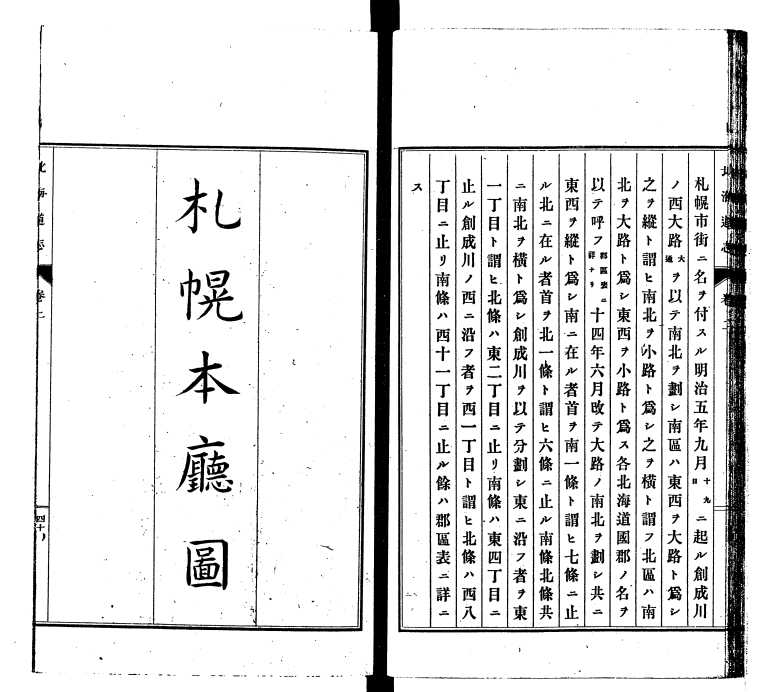 北海道志 卷二
札幌市街ニ名ヲ付スル明治五年九月十九日ニ起ル創成川
ノ西大路大通ヲ以テ南北ヲ劃シ南區ハ東西ヲ大路ト爲シ
之ヲ縱ト謂ヒ南北ヲ小路ト爲シ之ヲ橫ト謂フ北區ハ南
北ヲ大路ト爲シ東西ヲ小路ト爲ス各北海道國郡ノ名ヲ
以テ呼フ郡區表ニ詳ナリ十四年六月改テ大路ノ南北ヲ劃シ共ニ
東西ヲ縱ト爲シ南ニ在ル者首ヲ南一條ト謂ヒ七條ニ止
ル北ニ在ル者首ヲ北一條ト謂ヒ六條ニ止ル南條北條共
ニ南北ヲ橫ト爲シ創成川ヲ以テ分劃シ東ニ沿フ者ヲ東
一丁目ト謂ヒ北條ハ東二丁目ニ止リ南條ハ東四丁目ニ
止ル創成川ノ西ニ沿フ者ヲ西一丁目ト謂ヒ北條ハ西八
丁目ニ止リ南條ハ西十一丁目ニ止ル餘ハ郡區表ニ詳ニ
ス
札幌本廳圖
北海道志 卷二